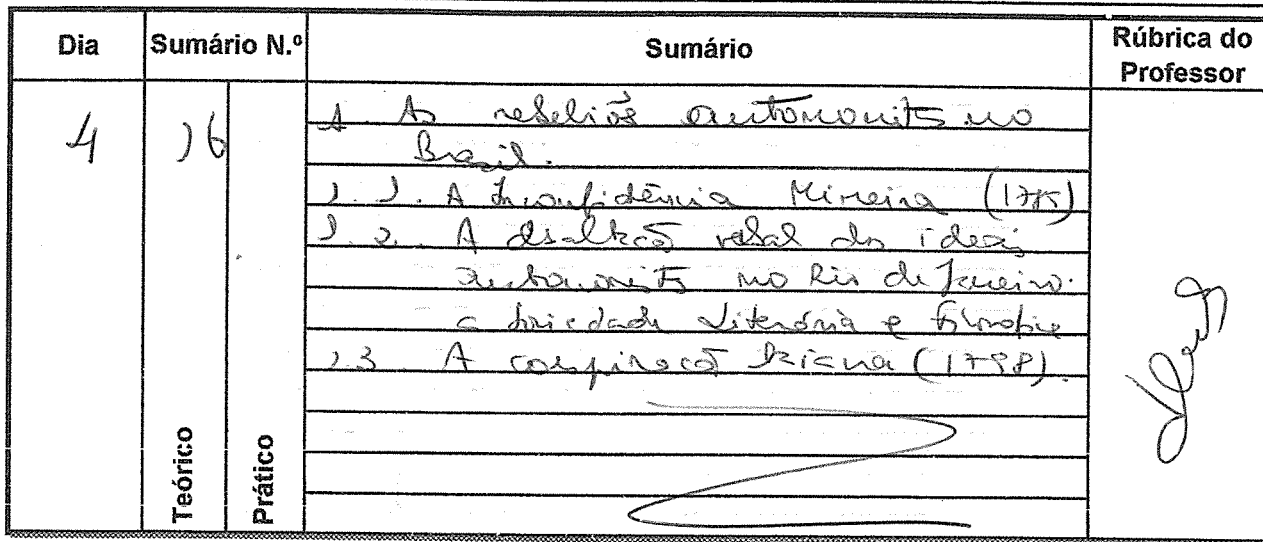 Dia Sumário N.º Sumário Rúbrica do Professor
4 16 1. As rebeliões autonomistas no
Brasil.
1.1. A Inconfidência Mineira
1.2. A exaltação verbal das ideias
autonomistas no Rio de Janeiro:
a Sociedade Literária e Filosófica
1.3. A conspiração Baiana (1798).
Teórico
Prático